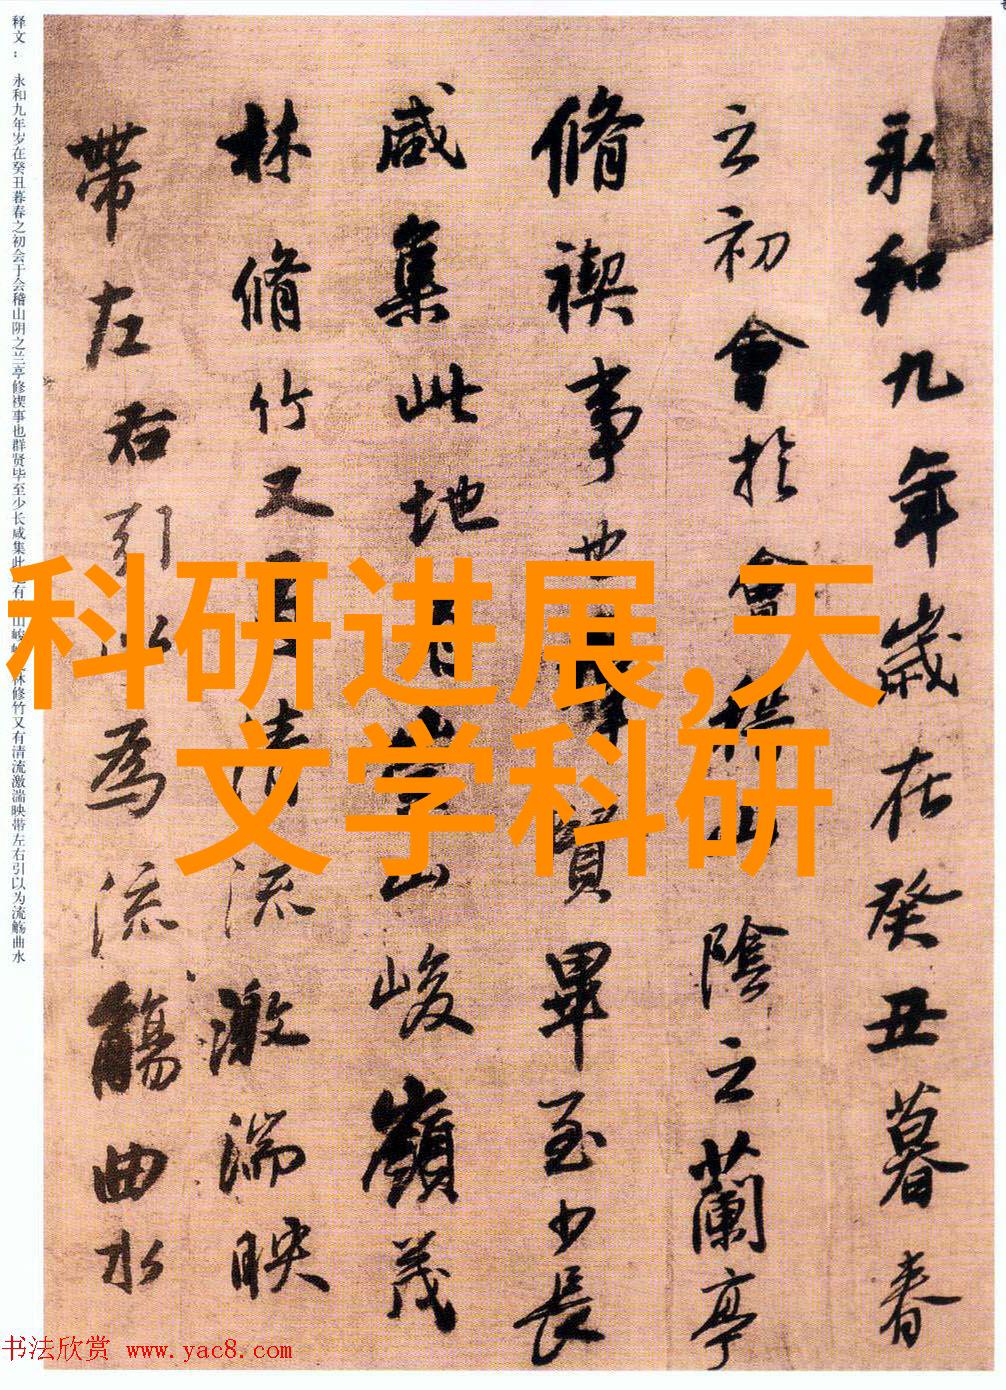 释文： 永和九年岁在癸丑暮春之初会于会稽山阴之兰亭修禊事也群贤毕至少长咸集此 有 山峻 林修竹又有清流激湍映带左右引以为流觞曲水
永和九年歲在癸丑暮春
之初會於會稽山陰之蘭亭
脩禊事也 賢畢至少長
咸集此地 山峻嶺茂
林脩竹又 清流激湍映
帶左右引以爲流觴曲水
科研进展,天
文学科研
书法欣赏 www.yac8.com